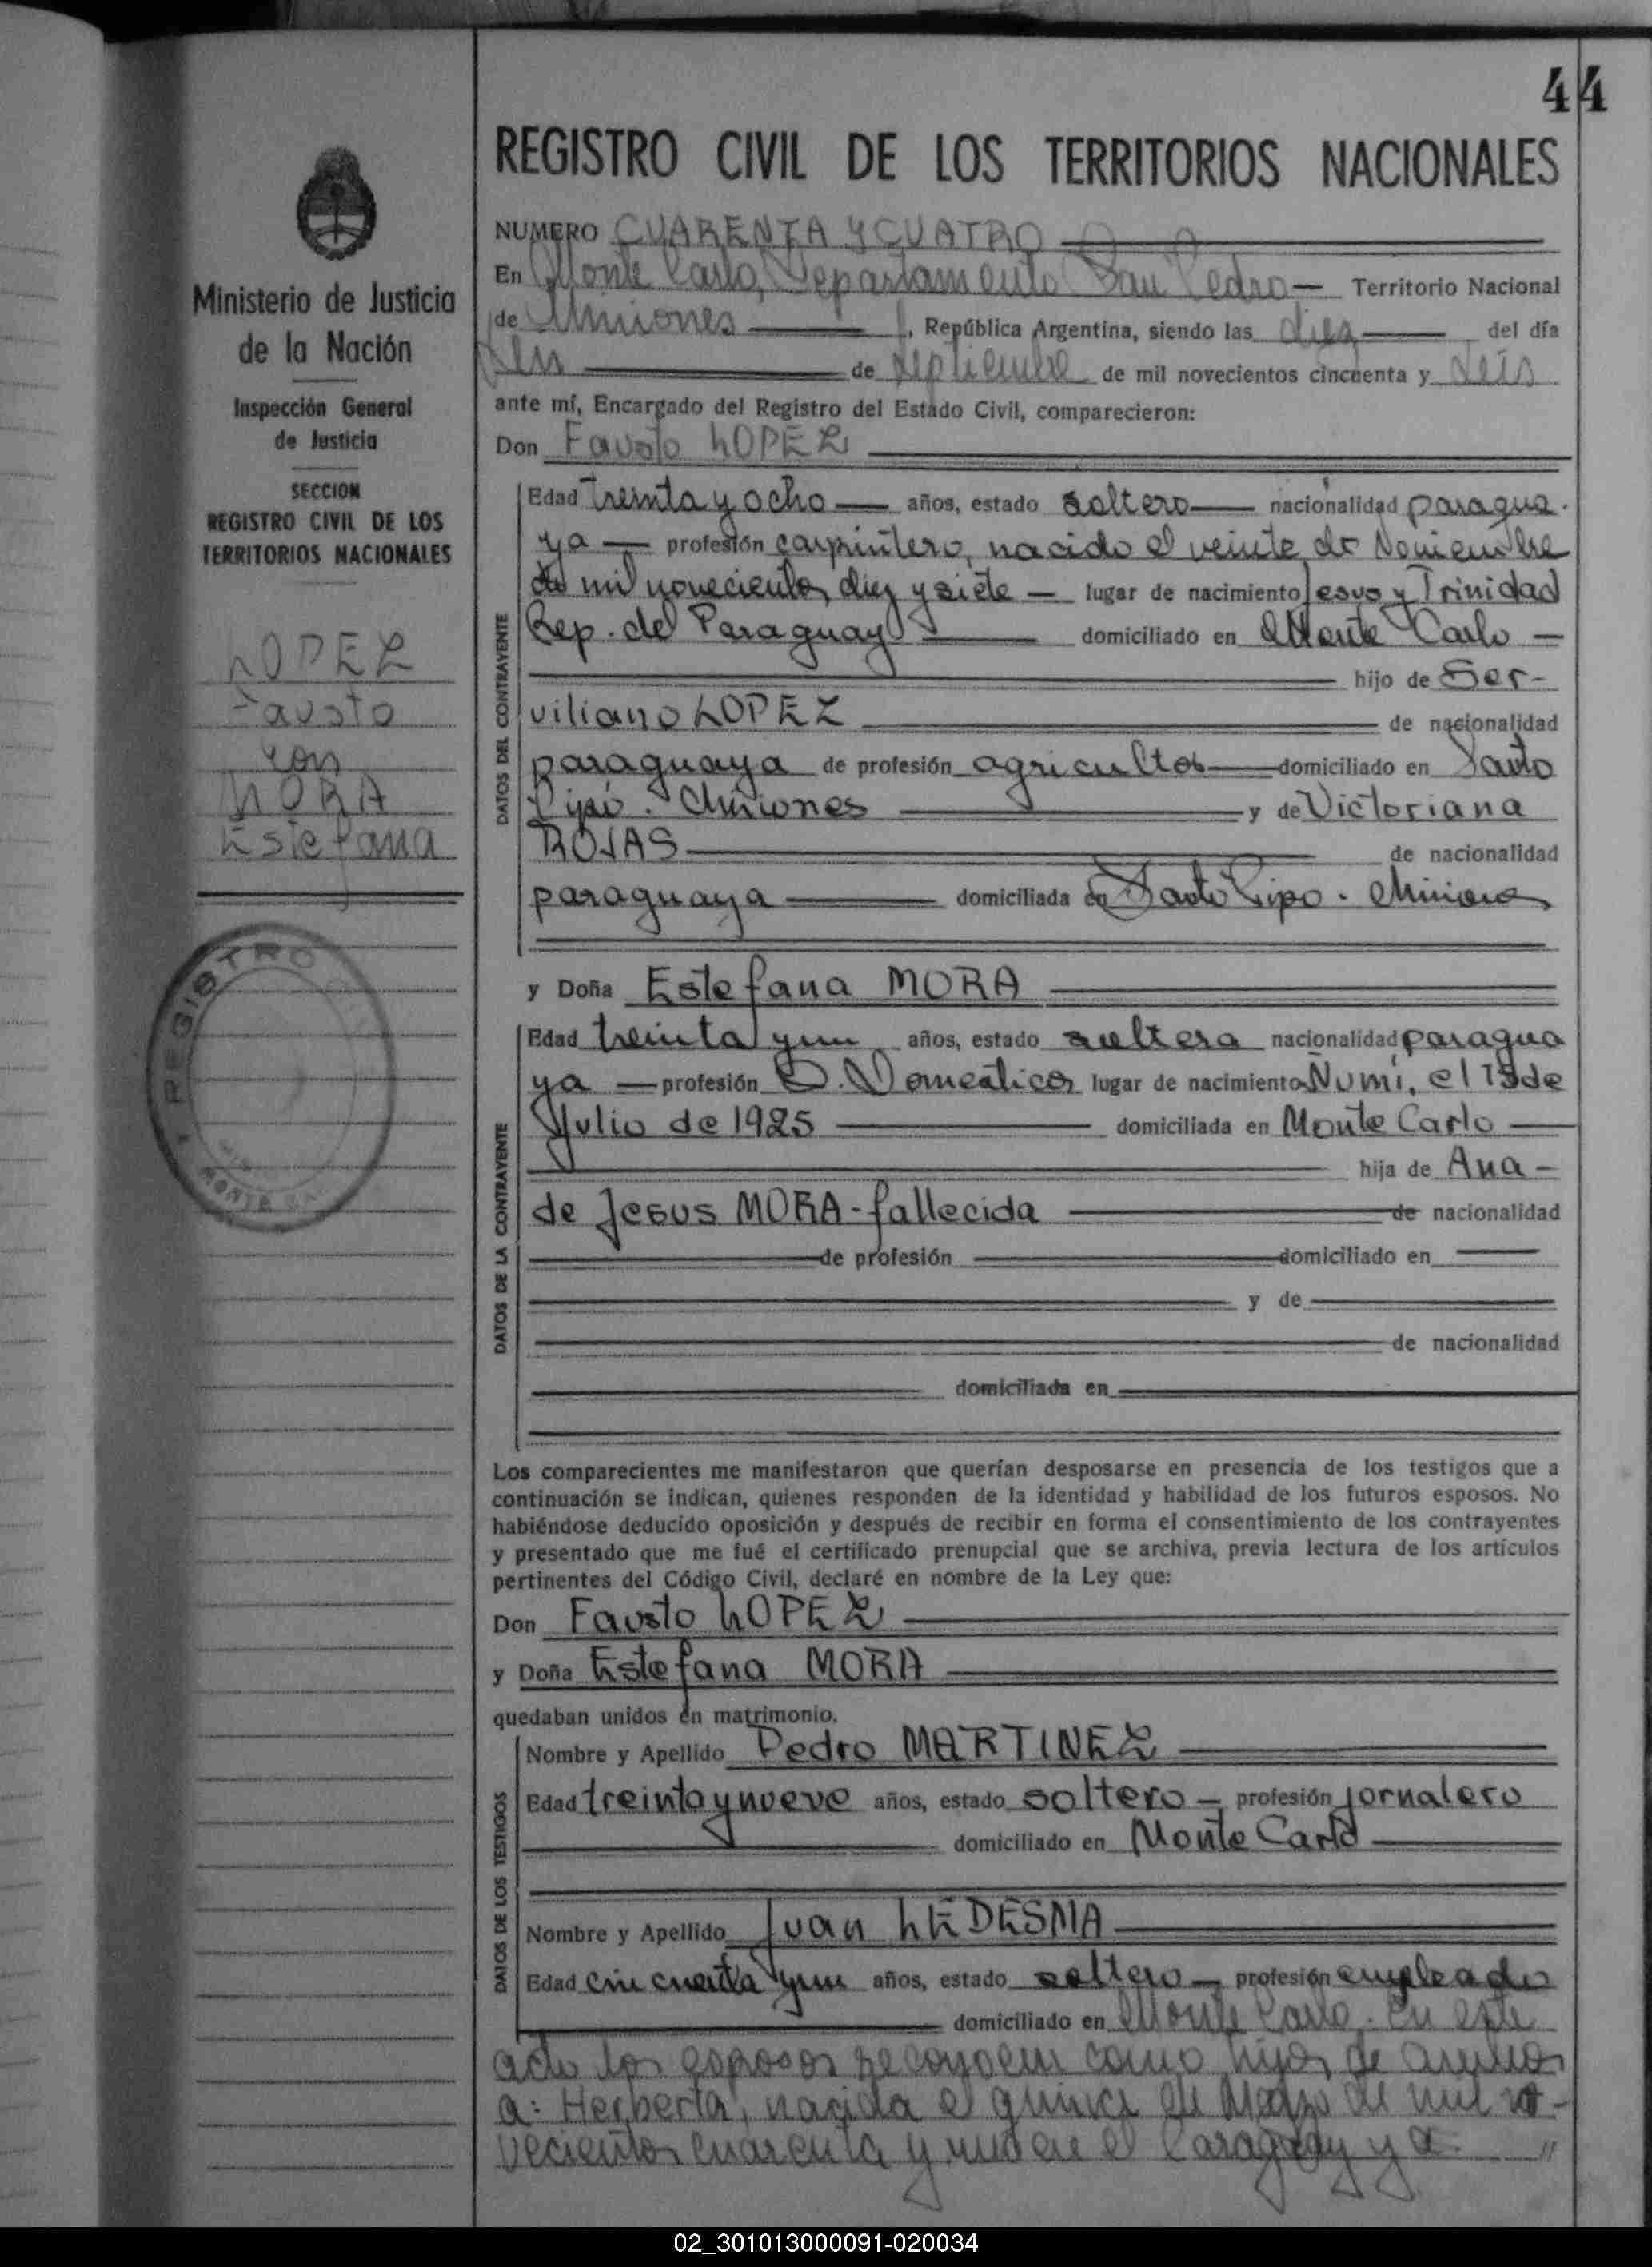 44
REGISTRO CIVIL DE LOS TERRITORIOS NACIONALES
Ministerio de Justicia
de la Nación
Inspección General
de Justicia
SECCION
REGISTRO CIVIL DE LOS
TERRITORIOS NACIONALES
LOPEZ
Fausto
con
MORA
Estefana
REGISTRO
NUMERO CUARENTA Y CUATRO
En Monte Carlo, Departamento San Pedro — Territorio Nacional
de Misiones —, República Argentina, siendo las diez — del día
de septiembre de mil novecientos cincuenta y seis
ante mí, Encargado del Registro del Estado Civil, comparecieron:
Don Fausto LOPEZ
DATOS DEL CONTRAYENTE
Edad treinta y ocho — años, estado soltero — nacionalidad paragua-
ya — profesión carpintero, nacido el veinte de Noviembre
de mil novecientos diez y siete — lugar de nacimiento Jesus y Trinidad
Rep. del Paraguay — domiciliado en Monte Carlo —
hijo de Ser-
viliano LOPEZ — de nacionalidad
paraguaya de profesión agricultor — domiciliado en Santo
Pipó. Misiones — y de Victoriana
ROJAS — de nacionalidad
paraguaya — domiciliada en Santo Pipo - Misiones
y Doña Estefana MORA
DATOS DE LA CONTRAYENTE
Edad treinta y un años, estado soltera nacionalidad paragua
ya — profesión Q. Domesticos lugar de nacimiento Ñumí, el de
Julio de 1925 — domiciliada en Monte Carlo —
hija de Ana -
de Jesus MORA - fallecida — de nacionalidad
— de profesión — domiciliado en —
— y de —
— de nacionalidad
— domiciliada en —
Los comparecientes me manifestaron que querían desposarse en presencia de los testigos que a
continuación se indican, quienes responden de la identidad y habilidad de los futuros esposos. No
habiéndose deducido oposición y después de recibir en forma el consentimiento de los contrayentes
y presentado que me fué el certificado prenupcial que se archiva, previa lectura de los artículos
pertinentes del Código Civil, declaré en nombre de la Ley que:
Don Fausto LOPEZ
y Doña Estefana MORA
quedaban unidos en matrimonio.
DATOS DE LOS TESTIGOS
Nombre y Apellido Pedro MARTINEZ
Edad treinta y nueve años, estado soltero — profesión jornalero
— domiciliado en Monte Carlo
Nombre y Apellido Juan LEDESMA
Edad cincuenta y un años, estado soltero — profesión empleado
— domiciliado en Monte Carlo. En este
acto los esposos reconocen como hijos de ambos
a: Herberta, nacida el quince de Marzo de mil no-
vecientos cuarenta y en el Paraguay y a: "
02_301013000091-020034